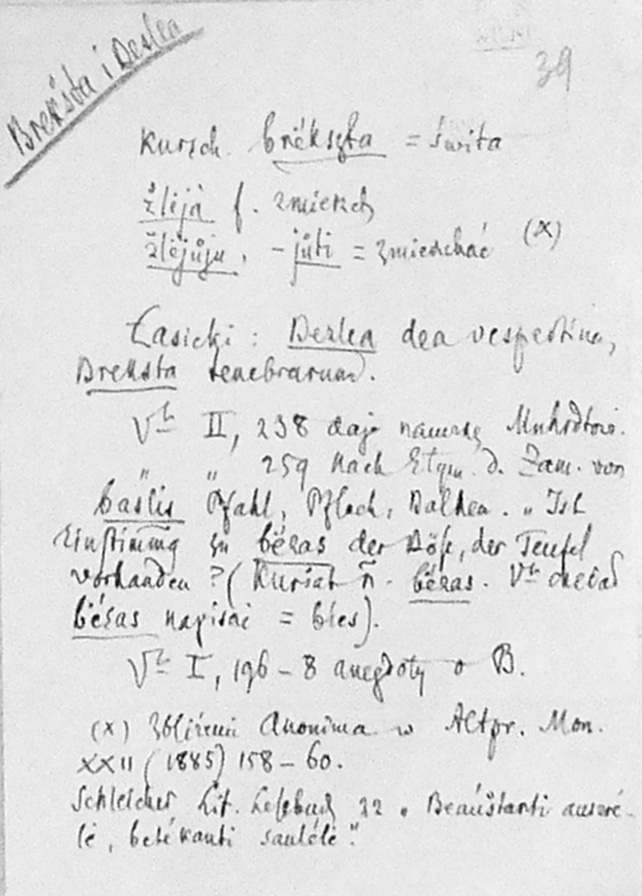 Breksta i Dezlea
39
Kursch. brėkszta = świta
žlėja f. zmierzch
žlėjůju, -jůti = zmierzchać (x)
Łasicki: Dezlea dea vespertina,
Breksta tenebrarum.
V II, 238 daje nazwę
" " 259 Nach Etym. d. Zam. von
baslis Pfahl, Pflock, Balken. „Ist
Einstimmg zu bėsas der Böse, der Teufel
vorhanden? (Kuršat ñ. bėsas. V
bėsas napisać = bies).
V I, 196–8 anegdoty o B.
(x) Anonima w Altpr. Mon.
XXII (1885) 158–60.
Schleicher Lit. Lesebuch 22 „Beaúštanti auszrė-
lė, betėkanti saulėlė."